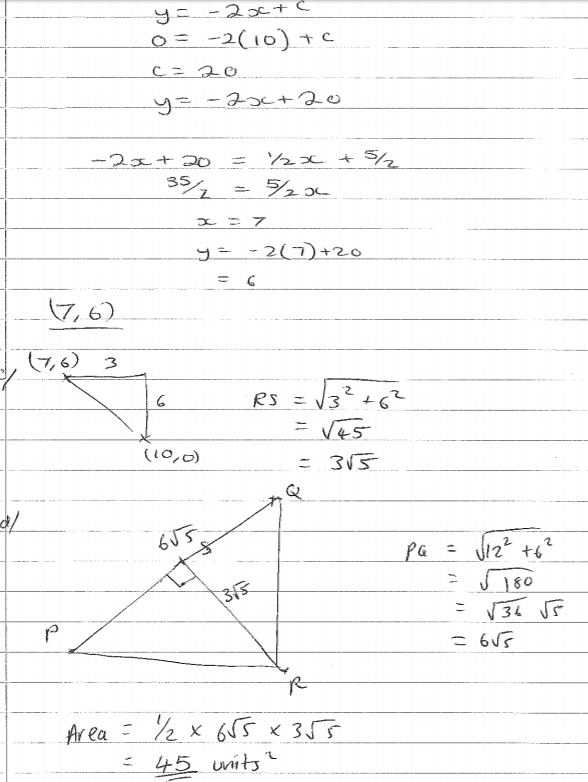 y = -2x + c
0 = -2(10) + c
c = 20
y = -2x + 20
-2x + 20 = 1/2x + 5/2
35/2 = 5/2x
x = 7
y = -2(7)+20
= 6
(7,6)
(7,6) 3
6
(10,0)
RS = √3² + 6²
= √45
= 3√5
d/
Q
6√5
S
3√5
P
R
PQ = √12² + 6²
= √180
= √36 √5
= 6√5
Area = 1/2 × 6√5 × 3√5
= 45 units²